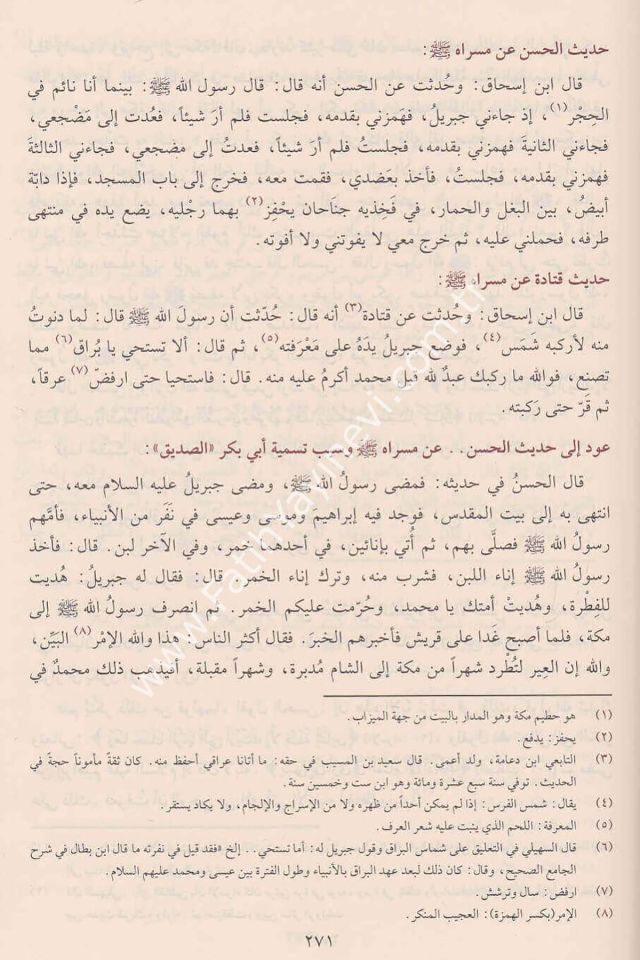 حديث الحسن عن مسراه ﷺ:
قال ابن إسحاق: وحُدثت عن الحسن أنه قال: قال رسول الله ﷺ: بينما أنا نائم في
الحِجْر(١)، إذ جاءني جبريلُ، فهَمزني بقدمه، فجلست فلم أرَ شيئاً، فعُدت إلى مَضْجعي،
فجاءني الثانيةَ فهمزني بقدمه، فجلستُ فلم أرَ شيئاً، فعدتُ إلى مضجعي، فجاءني الثالثةَ
فهمزني بقدمه، فجلستُ، فأخذ بعَضدي، فقمت معه، فخرج إلى باب المسجد، فإذا دابّة
أبيضُ، بين البغل والحمار، في فَخذيه جناحان يحْفِز(٢) بهما رجْليه، يضع يده في منتهى
طرفه، فحملني عليه، ثم خرج معي لا يفوتني ولا أفوته.
حديث قتادة عن مسراه ﷺ:
قال ابن إسحاق: وحُدثت عن قتادة(٣) أنه قال: حُدّثت أن رسولَ الله ﷺ قال: لما دنوتُ
منه لأركبه شَمَس(٤)، فوضع جبريلُ يدَهُ على مَعْرَفته(٥)، ثم قال: ألا تستحي يا بُراق(٦) مما
تصنع، فوالله ما ركبك عبدٌ لله قبل محمد أكرمُ عليه منه. قال: فاستحيا حتى ارفضّ(٧) عرقاً،
ثم قَرّ حتى رَكبته.
عود إلى حديث الحسن.. عن مسراه ﷺ وسبب تسمية أبي بكر «الصديق»:
قال الحسنُ في حديثه: فمضى رسولُ الله ﷺ، ومضى جبريلُ عليه السلام معه، حتى
انتهى به إلى بيت المقدس، فوجد فيه إبراهيمَ وموسى وعيسى في نَفَر من الأنبياء، فأمَّهم
رسولُ الله ﷺ فصلَّى بهم، ثم أُتي بإنائين، في أحدهما خمر، وفي الآخر لبن. قال: فأخذ
رسولُ الله ﷺ إناء اللبن، فشرب منه، وترك إناء الخمر. قال: فقال له جبريلُ: هُديت
للفِطْرة، وهُديتْ أمتك يا محمد، وحُرّمت عليكم الخمر. ثم انصرف رسولُ الله ﷺ إلى
مكة، فلما أصبح غَدا على قريش فأخبرهم الخبرَ. فقال أكثر الناس: هذا والله الإمْر(٨) البَيِّن،
والله إن العِير لتُطْرد شهراً من مكة إلى الشام مُدبرة، وشهراً مقبلة، أفيذهب ذلك محمدٌ في
(١) هو حطيم مكة وهو المدار بالبيت من جهة الميزاب.
(٢) يحفز: يدفع.
(٣) التابعي ابن دعامة، ولد أعمى. قال سعيد بن المسيب في حفه: ما أتانا عراقي أحفظ منه. كان ثقة مأموناً حجة في
الحديث. توفي سنة سبع عشرة ومائة وهو ابن ست وخمسين سنة.
(٤) يقال: شمس الفرس: إذا لم يمكن أحداً من ظهره ولا من الإسراج والإلجام، ولا يكاد يستقر.
(٥) المعرفة: اللحم الذي ينبت عليه شعر العرف.
(٦) قال السهيلي في التعليق على شماس البراق وقول جبريل له: أما تستحي.. إلخ «فقد قيل في نفرته ما قال ابن بطال في شرح
الجامع الصحيح، وقال: كان ذلك لبعد عهد البراق بالأنبياء وطول الفترة بين عيسى ومحمد عليهم السلام.
(٧) ارفض: سال وترشش.
(٨) الإمر(بكسر الهمزة): العجيب المنكر.
٢٧١